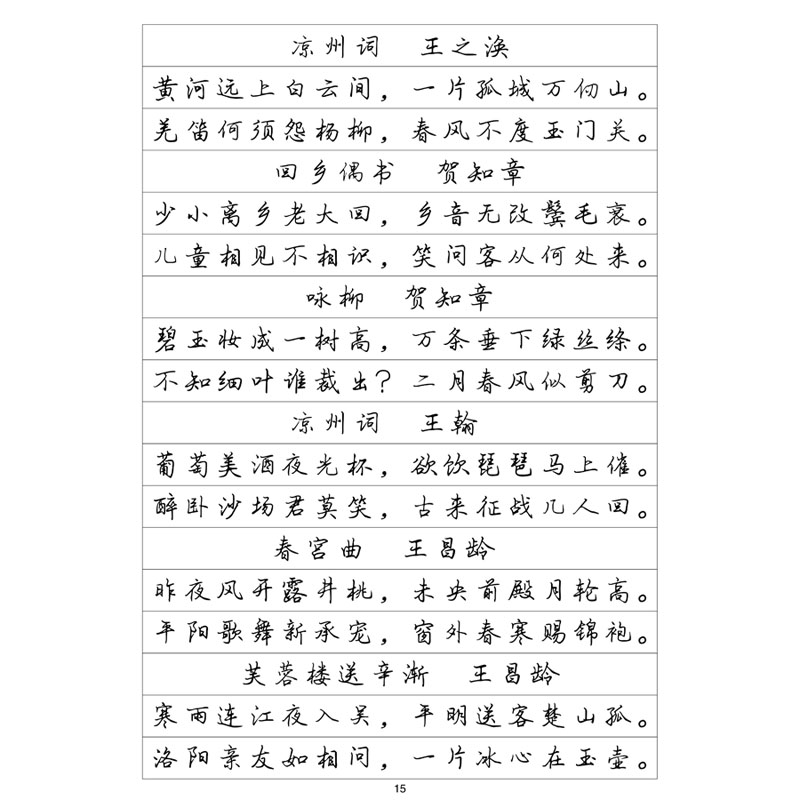 凉州词 王之涣
黄河远上白云间，一片孤城万仞山。
羌笛何须怨杨柳，春风不度玉门关。
回乡偶书 贺知章
少小离乡老大回，乡音无改鬓毛衰。
儿童相见不相识，笑问客从何处来。
咏柳 贺知章
碧玉妆成一树高，万条垂下绿丝绦。
不知细叶谁裁出？二月春风似剪刀。
凉州词 王翰
葡萄美酒夜光杯，欲饮琵琶马上催。
醉卧沙场君莫笑，古来征战几人回。
春宫曲 王昌龄
昨夜风开露井桃，未央前殿月轮高。
平阳歌舞新承宠，窗外春寒赐锦袍。
芙蓉楼送辛渐 王昌龄
寒雨连江夜入吴，平明送客楚山孤。
洛阳亲友如相问，一片冰心在玉壶。
15